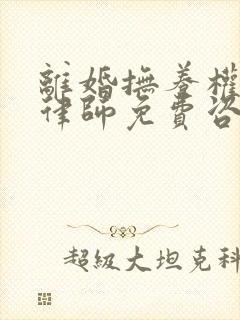 離婚撫養權
律師免費咨
超級大坦克科